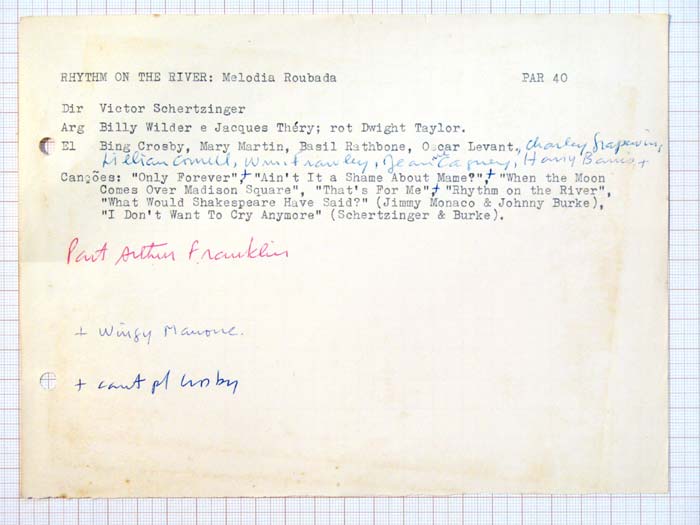 RHYTHM ON THE RIVER: Melodia Roubada PAR 40
Dir Victor Schertzinger
Arg Billy Wilder e Jacques Théry; rot Dwight Taylor.
El Bing Crosby, Mary Martin, Basil Rathbone, Oscar Levant, Charley Grapewin,
Lillian Cornell, Wm. Frawley, Jean Cagney, Harry Barris +
Canções: "Only Forever",+ "Ain't It a Shame About Mame?",+ "When the Moon
Comes Over Madison Square", "That's For Me",+ "Rhythm on the River",
"What Would Shakespeare Have Said?" (Jimmy Monaco & Johnny Burke),
"I Don't Want To Cry Anymore" (Schertzinger & Burke).
Part Arthur Franklin
+ Wingy Manone.
+ cant p/ Crosby